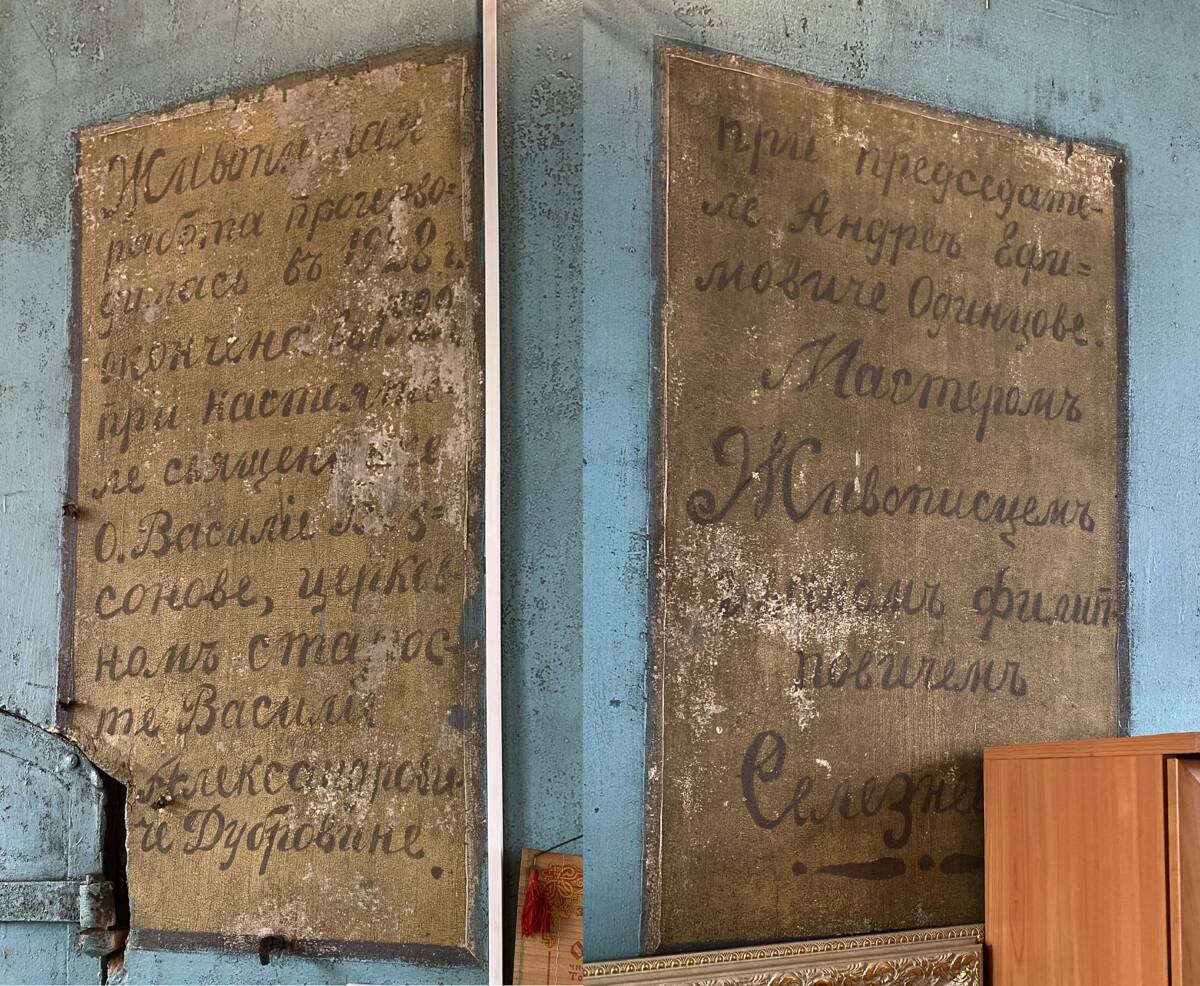 Живописная
работа произво=
дилась въ 1928 г.
окончена
при настояте-
ле священнике
О. Василіе
сонове, церков-
номъ старос-
те Василіе
Александрови-
че Дубровине.
при председате-
ле Андрее Ефи=
мовиче Одинцове.
Мастеромъ
Живописцемъ
филип-
повичемъ